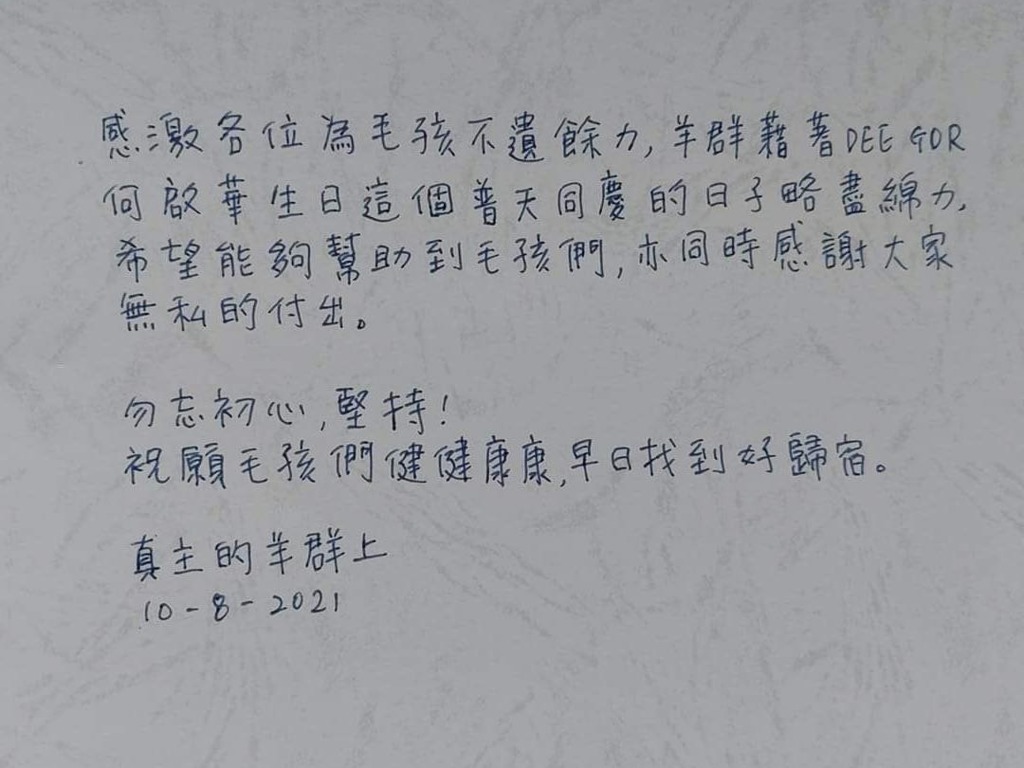 感激各位為毛孩不遺餘力,羊群藉著DEE GOR
何啟華生日這個普天同慶的日子略盡綿力,
希望能夠幫助到毛孩們,亦同時感謝大家
無私的付出。
勿忘初心,堅持!
祝願毛孩們健健康康,早日找到好歸宿。
真主的羊群上
10-8-2021